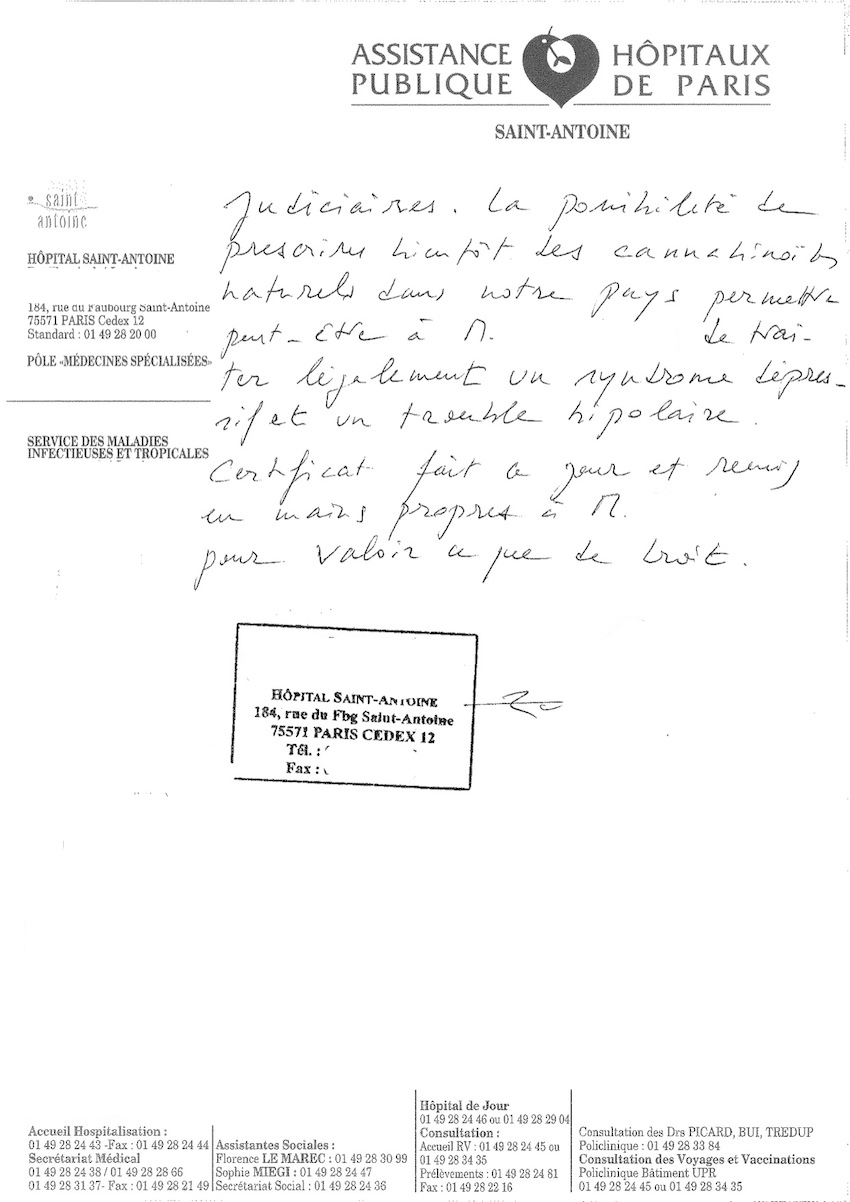 ASSISTANCE HÔPITAUX
PUBLIQUE DE PARIS
SAINT-ANTOINE
saint
antoine
HÔPITAL SAINT-ANTOINE
184, rue du Faubourg Saint-Antoine
75571 PARIS Cedex 12
Standard : 01 49 28 20 00
PÔLE «MÉDECINES SPÉCIALISÉES»
SERVICE DES MALADIES
INFECTIEUSES ET TROPICALES
Judiciaires. La possibilité de
prescrire bientôt des cannabinoïdes
naturels dans notre pays permettra
peut-être à M. de trai-
ter légalement un syndrome dépres-
sif et un trouble bipolaire.
Certificat fait ce jour et remis
en mains propres à M.
pour valoir ce que de droit.
HÔPITAL SAINT-ANTOINE
184, rue du Fbg Saint-Antoine
75571 PARIS CEDEX 12
Tél. :
Fax :
Accueil Hospitalisation :
01 49 28 24 43 -Fax : 01 49 28 24 44
Secrétariat Médical
01 49 28 24 38 / 01 49 28 28 66
01 49 28 31 37- Fax : 01 49 28 21 49
Assistantes Sociales :
Florence LE MAREC : 01 49 28 30 99
Sophie MIEGI : 01 49 28 24 47
Secrétariat Social : 01 49 28 24 36
Hôpital de Jour
01 49 28 24 46 ou 01 49 28 29 04
Consultation :
Accueil RV : 01 49 28 24 45 ou
01 49 28 34 35
Prélèvements : 01 49 28 24 81
Fax : 01 49 28 22 16
Consultation des Drs PICARD, BUI, TREDUP
Policlinique : 01 49 28 33 84
Consultation des Voyages et Vaccinations
Policlinique Bâtiment UPR
01 49 28 24 45 ou 01 49 28 34 35